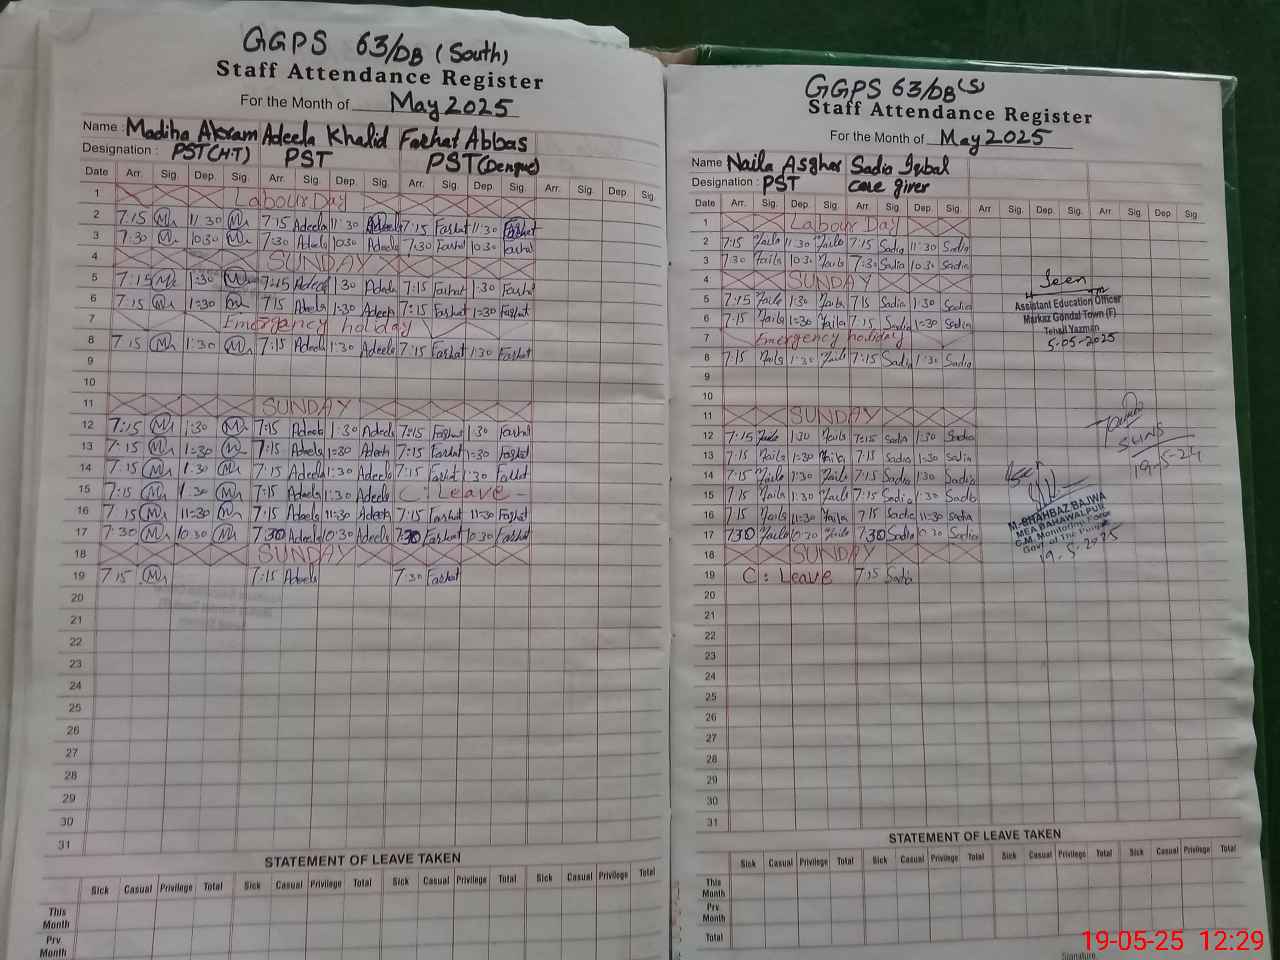 GGPS 63/DB (South)
Staff Attendance Register
For the Month of May 2025
Name : Madiha Akram Adeela Khalid Farhat Abbas
Designation : PST(H.T) PST PST (Dengue)
Date Arr. Sig. Dep. Sig. Arr. Sig. Dep. Sig. Arr. Sig. Dep. Sig. Arr. Sig. Dep. Sig.
1 Labour Day
2 7:15 M 11:30 M 7:15 Adeela 11:30 Adeela 7:15 Farhat 11:30 Farhat
3 7:30 M 10:30 M 7:30 Adeela 10:30 Adeela 7:30 Farhat 10:30 Farhat
4 SUNDAY
5 7:15 M 1:30 M 7:15 Adeela 1:30 Adeela 7:15 Farhat 1:30 Farhat
6 7:15 M 1:30 M 7:15 Adeela 1:30 Adeela 7:15 Farhat 1:30 Farhat
7 Emergency holiday
8 7:15 M 1:30 M 7:15 Adeela 1:30 Adeela 7:15 Farhat 1:30 Farhat
9
10
11 SUNDAY
12 7:15 M 1:30 M 7:15 Adeela 1:30 Adeela 7:15 Farhat 1:30 Farhat
13 7:15 M 1:30 M 7:15 Adeela 1:30 Adeela 7:15 Farhat 1:30 Farhat
14 7:15 M 1:30 M 7:15 Adeela 1:30 Adeela 7:15 Farhat 1:30 Farhat
15 7:15 M 1:30 M 7:15 Adeela 1:30 Adeela C: Leave -
16 7:15 M 11:30 M 7:15 Adeela 11:30 Adeela 7:15 Farhat 11:30 Farhat
17 7:30 M 10:30 M 7:30 Adeela 10:30 Adeela 7:30 Farhat 10:30 Farhat
18 SUNDAY
19 7:15 M 7:15 Adeela 7:30 Farhat
20
21
22
23
24
25
26
27
28
29
30
31
STATEMENT OF LEAVE TAKEN
Sick Casual Privilege Total Sick Casual Privilege Total Sick Casual Privilege Total Sick Casual Privilege Total
This Month
Prv. Month
GGPS 63/DB(S)
Staff Attendance Register
For the Month of May 2025
Name Naila Asghar Sadia Iqbal
Designation : PST care giver
Date Arr. Sig. Dep. Sig. Arr. Sig Dep. Sig. Arr Sig. Dep. Sig. Arr. Sig. Dep Sig.
1 Labour Day
2 7:15 Naila 11:30 Naila 7:15 Sadia 11:30 Sadia
3 7:30 Naila 10:30 Naila 7:30 Sadia 10:30 Sadia
4 SUNDAY
5 7:15 Naila 1:30 Naila 7:15 Sadia 1:30 Sadia
6 7:15 Naila 1:30 Naila 7:15 Sadia 1:30 Sadia
7 Emergency holiday
8 7:15 Naila 1:30 Naila 7:15 Sadia 1:30 Sadia
9
10
11 SUNDAY
12 7:15 Naila 1:30 Naila 7:15 Sadia 1:30 Sadia
13 7:15 Naila 1:30 Naila 7:15 Sadia 1:30 Sadia
14 7:15 Naila 1:30 Naila 7:15 Sadia 1:30 Sadia
15 7:15 Naila 1:30 Naila 7:15 Sadia 1:30 Sadia
16 7:15 Naila 11:30 Naila 7:15 Sadia 11:30 Sadia
17 7:30 Naila 10:30 Naila 7:30 Sadia 10:30 Sadia
18 SUNDAY
19 C: Leave 7:15 Sadia
20
21
22
23
24
25
26
27
28
29
30
31
Seen
Assistant Education Officer
Markaz Gondal Town (F)
Tehsil Yazman
5-05-2025
19-5-24
M-SHAHBAZ BAJWA
MEA BAHAWALPUR
C.M. Monitoring Force
Govt of The Punjab
19-5-2025
STATEMENT OF LEAVE TAKEN
Sick Casual Privilege Total Sick Casual Privilege Total Sick Casual Privilege Total Sick Casual Privilege Total
This Month
Prv. Month
Total
Signature
19-05-25 12:29